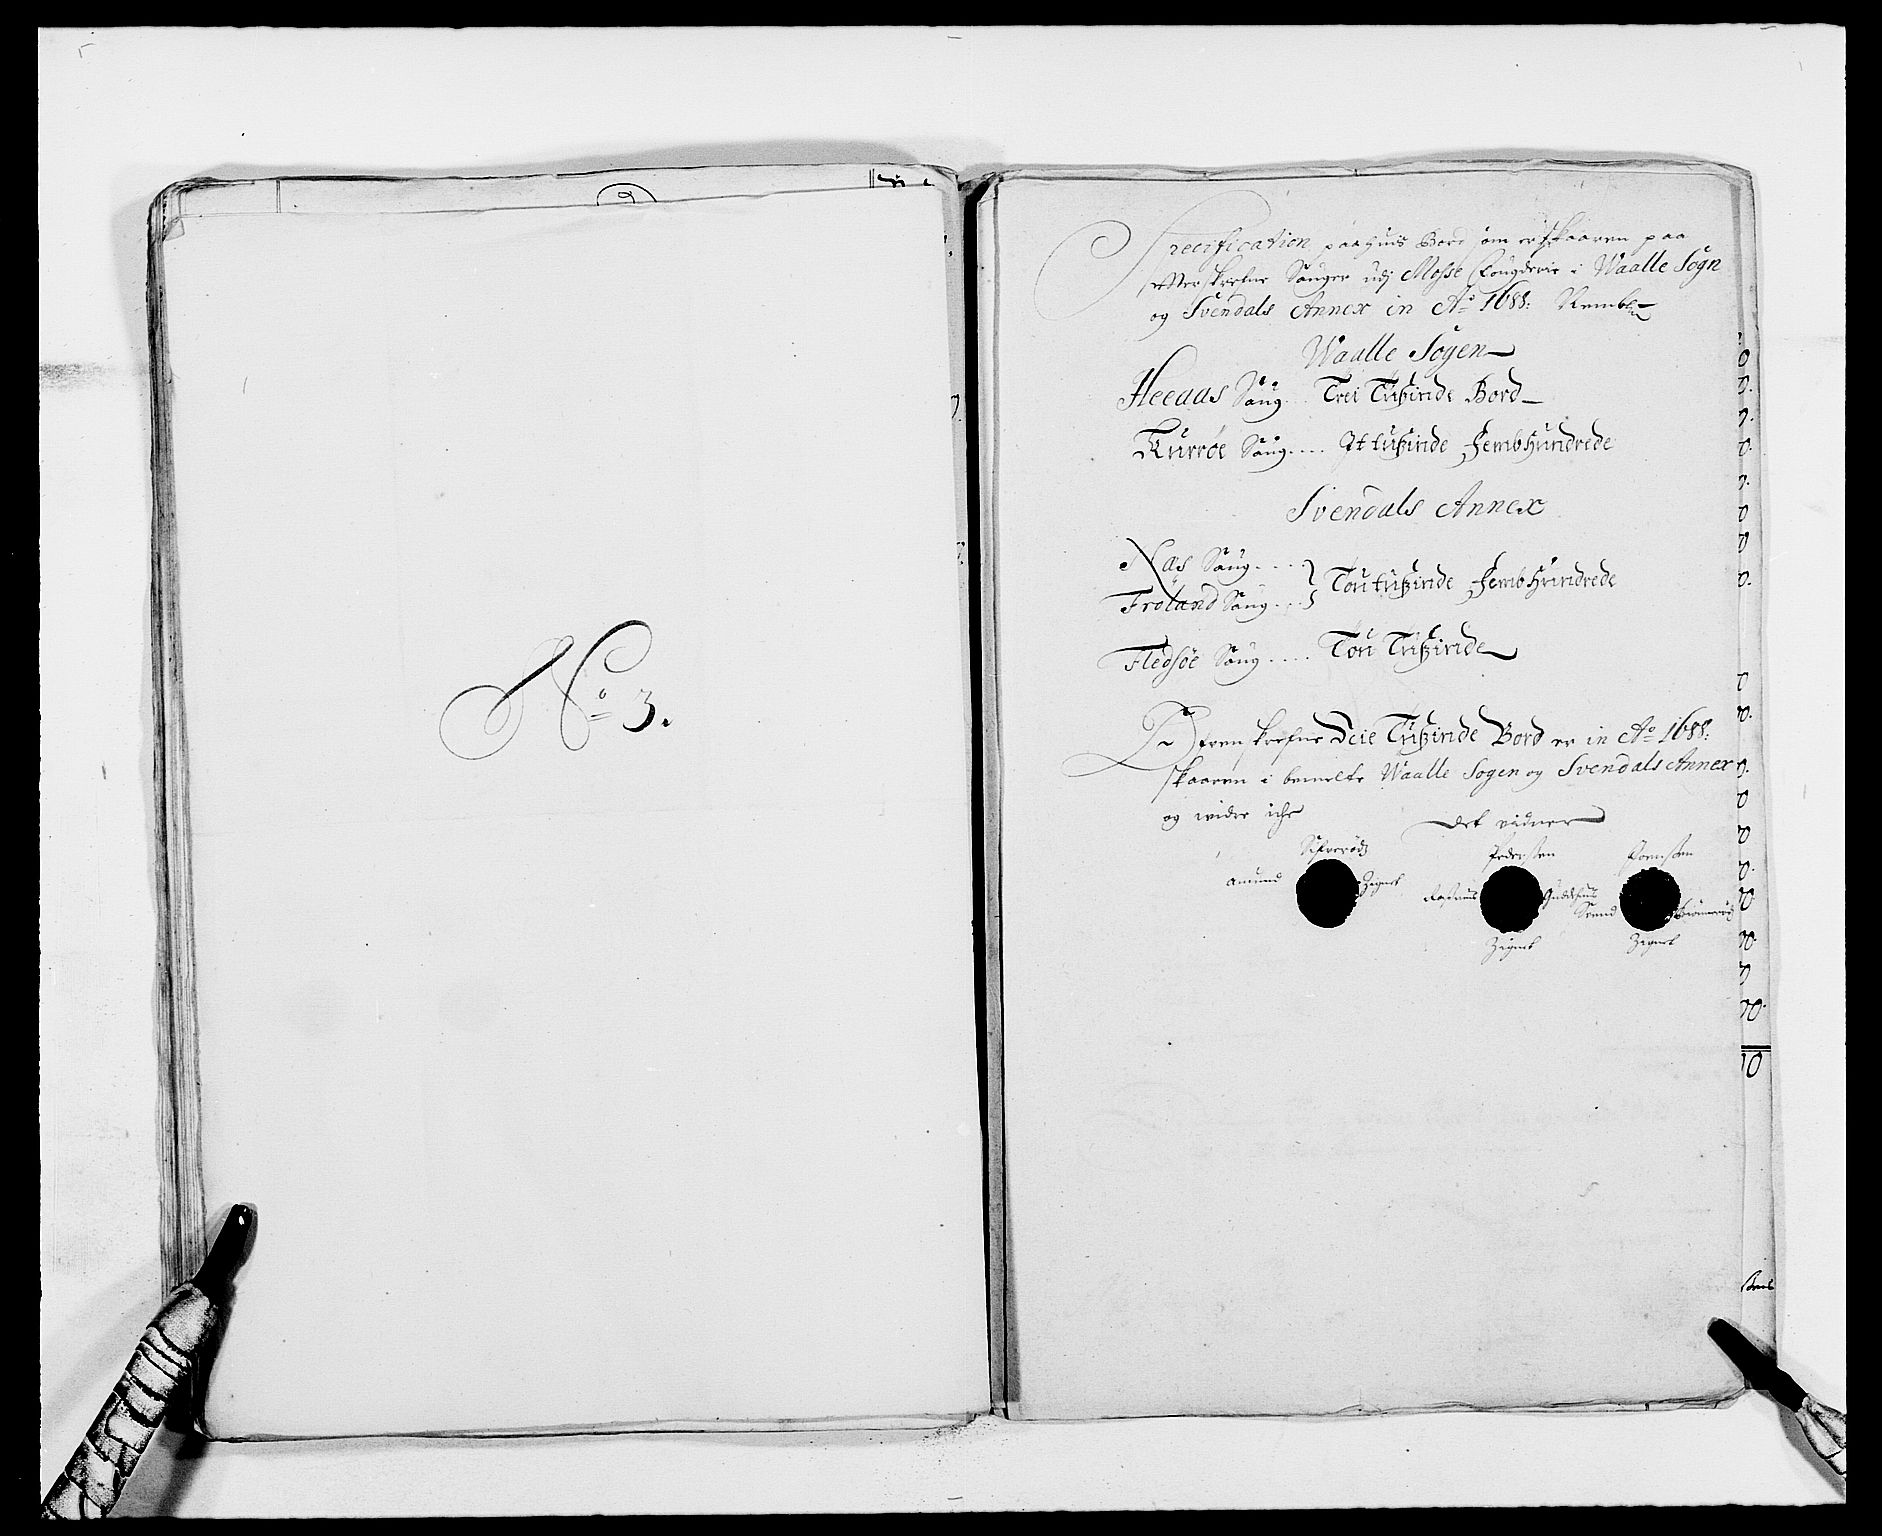 No 3.
Specification paa huis Bord som er skaaren paa
effterskrefne Sauger udj Mosse Fougderie i Waalle Sogn
og Svendals Annex in Ao 1688.
Waalle Sogen
Heeaas Saug. Trei Tusinde Bord
Kurrøe Saug.... It tusinde Femb Hundrede
Svendals Annex
Nas Saug....
Froland Saug... Tou tusinde Femb Hundrede
Fledsøe Saug.... Tou Tusinde
Ofvenskrefne Deie Tusinde Bord er in Ao 1688.
skaaren i bemelte Waalle Sogen og Svendals Annex
og widre iche
Det vidner
Amund Zignet
Pedersten
Rasmus Guldhuus
Zignet
Svend
Zignet